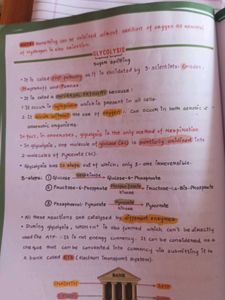 NOTE: Something can be oxidised without addition of oxygen as removal of Hydrogen is also oxidation.
GLYCOLYSIS
sugar splitting
• It is called EMP pathway as it is elucidated by 3-scientists: Embden,
Meyerhof, and Parnas.
• It is called a UNIVERSAL PATHWAY because:
1. It occurs in cytoplasm which is present in all cells.
2. It occurs without the use of oxygen. Can occur in both aerobic &
anaerobic organisms.
In fact, in anaerobes, glycolysis is the only method of Respiration
• In glycolysis, one molecule of glucose (6C) is partially oxidised into
2-molecules of Pyruvate (3C).
• Glycolysis has 10 steps out of which, only 3-are irreversible.
3-steps: ① Glucose Hexokinase → Glucose-6-Phosphate
② Fructose-6-Phosphate Phosphofructo kinase → Fructose-1,6-Bis-Phosphate
③ Phosphoenol Pyruvate Pyruvate kinase → Pyruvate
• All these reactions are catalysed by different enzymes.
• During glycolysis, NADH+H⁺ is also formed which can't be directly
used like ATP. It is not energy currency. It can be considered as a
cheque that can be converted into currency via submitting it to
a bank called ETS (Electron Transport System).
BANK